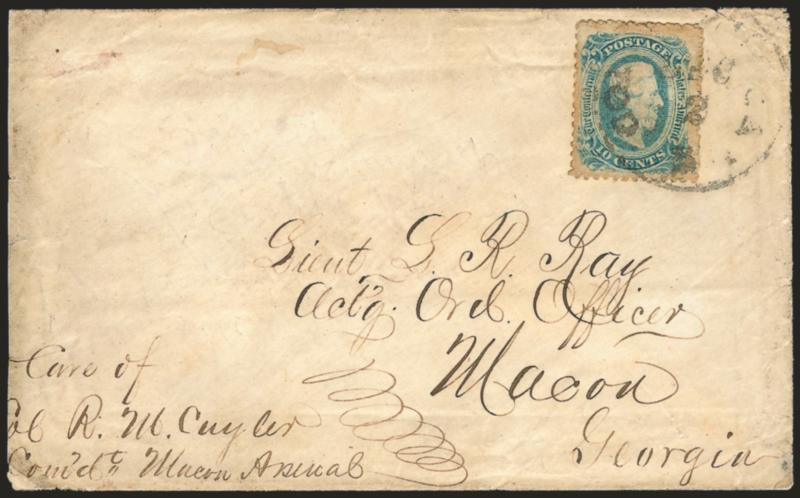 POSTAGE
The Confederate States of America
10 CENTS
Lieut. L. R. Ray
Act'g. Ord. Officer
Macon
Georgia
Care of
Col R. M. Cuyler
Com'dt Macon Arsenal